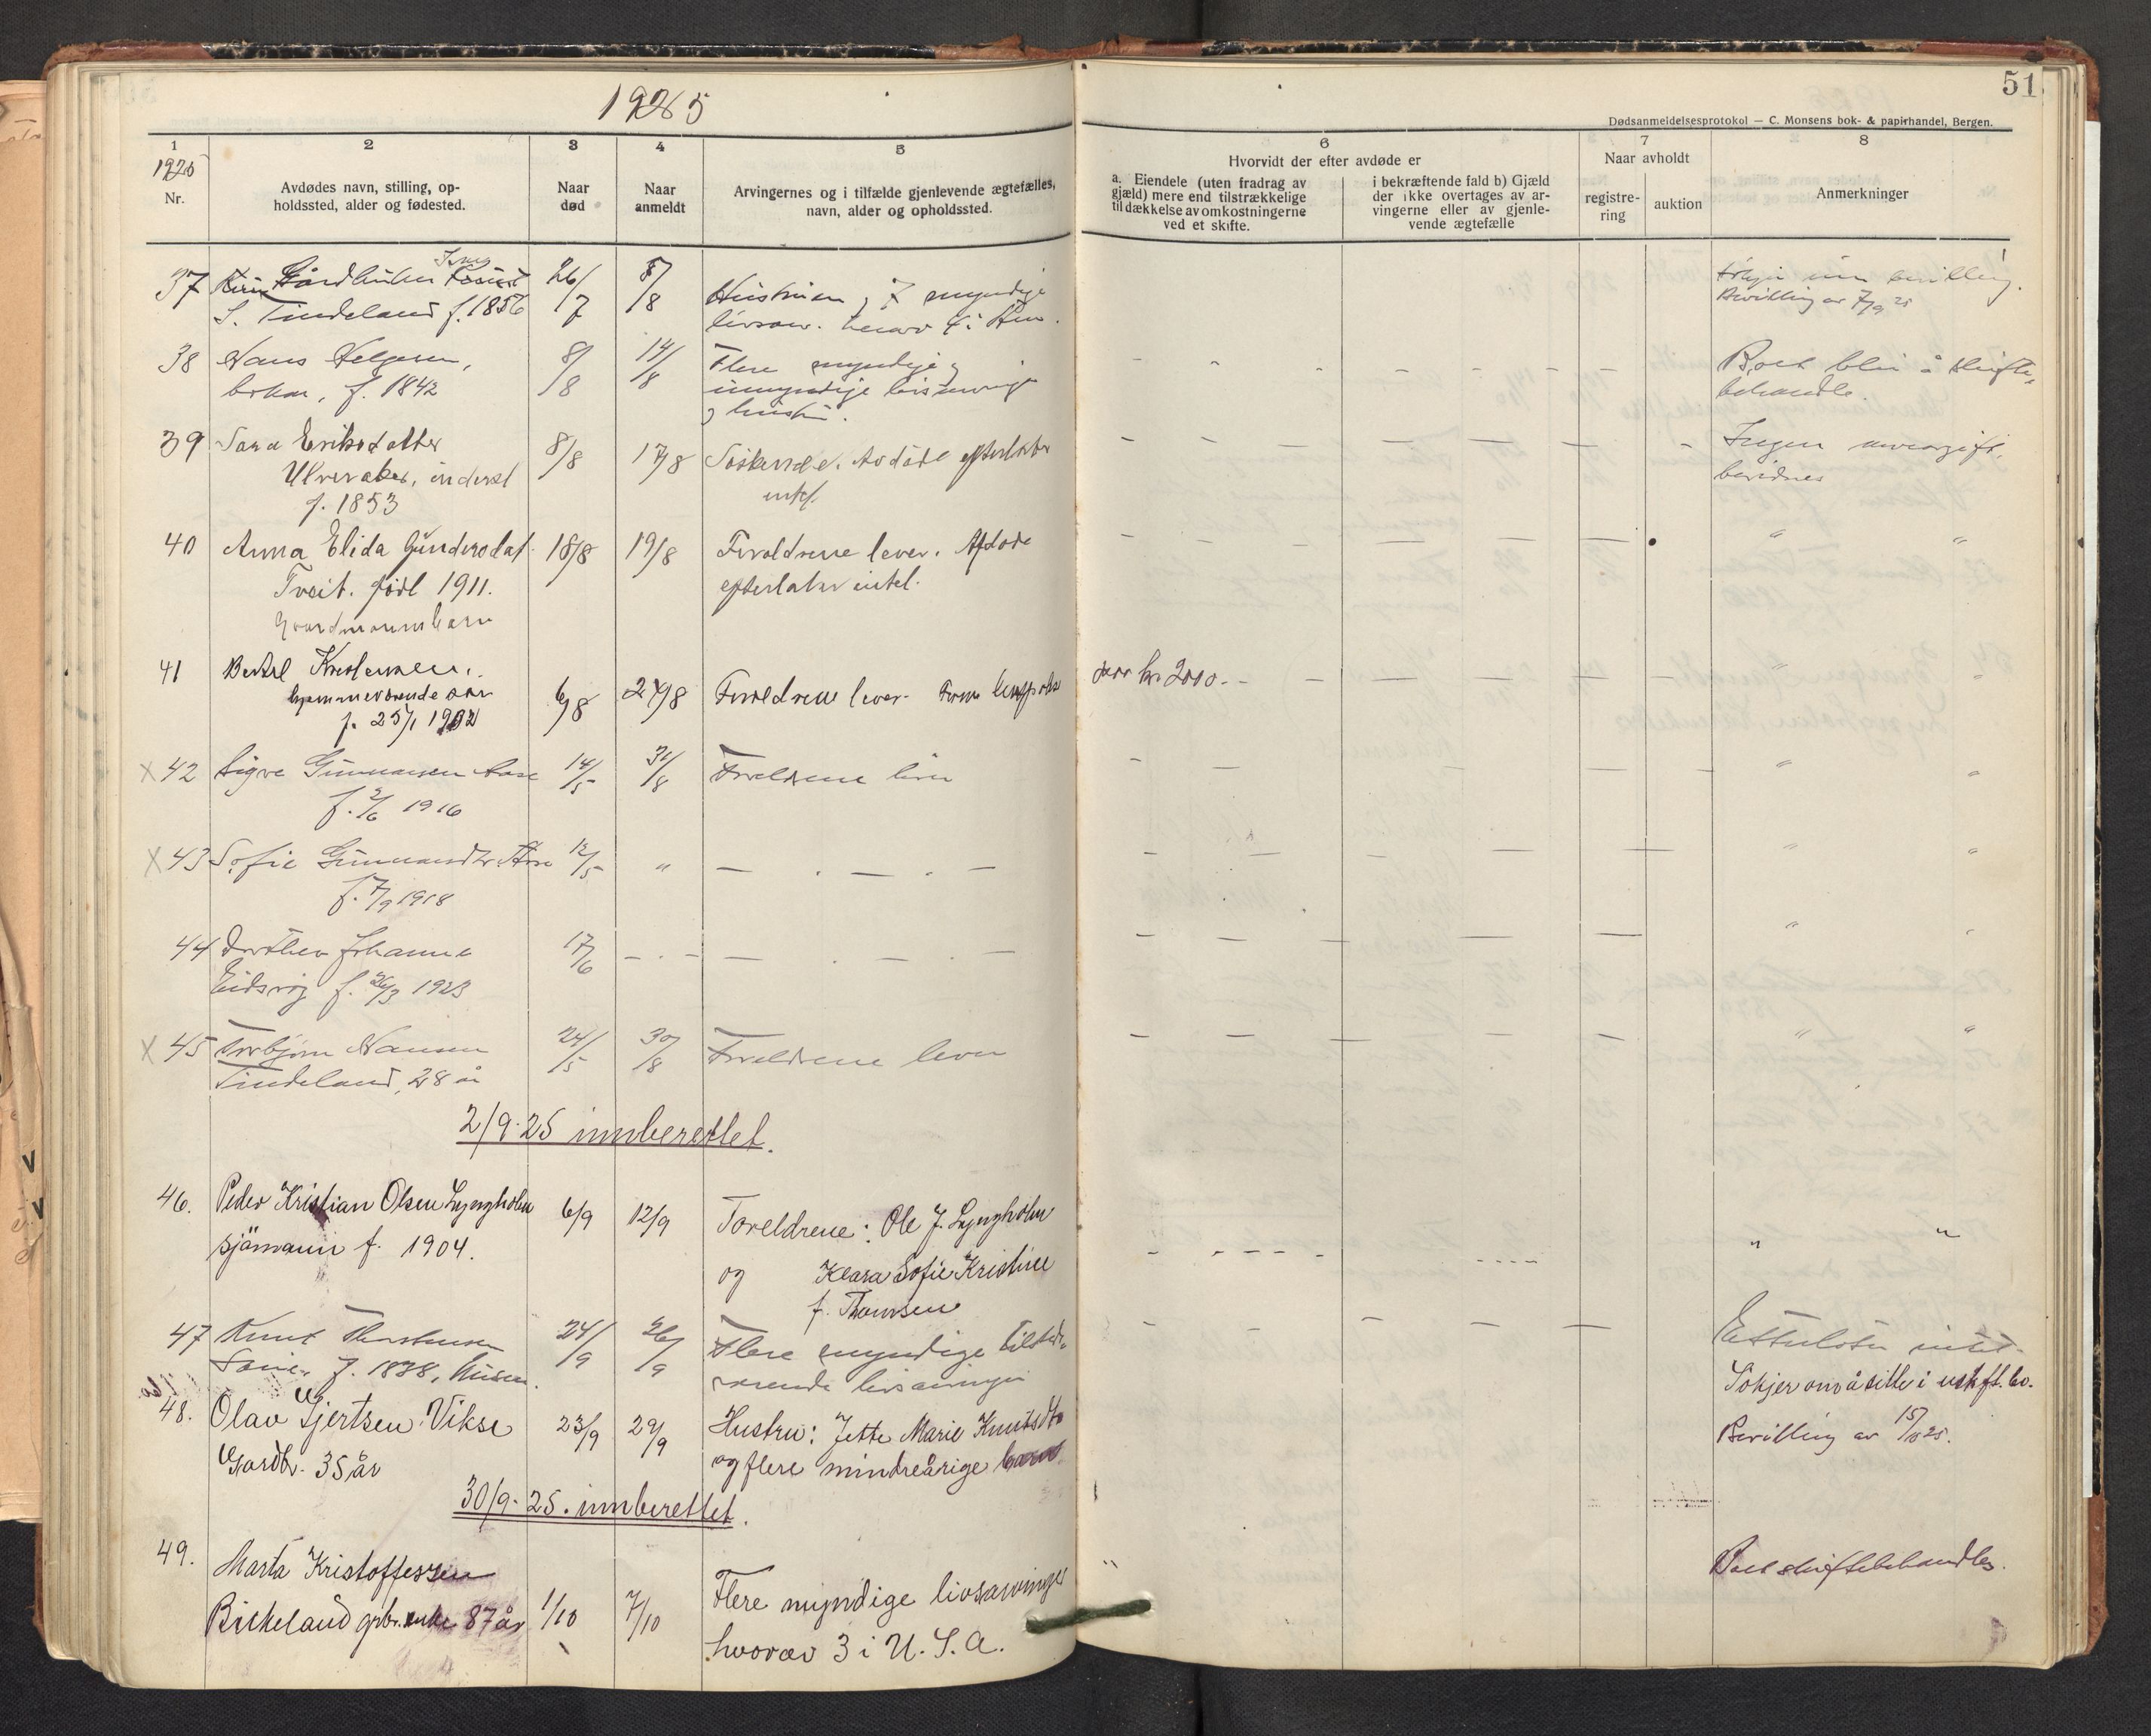 1925
51
Dødsanmeldelsesprotokol — C. Monsens bok- & papirhandel, Bergen.
1
2
3
4
5
6
7
8
1925
Nr.
Avdødes navn, stilling, op-
holdssted, alder og fødested.
Naar
død
Naar
anmeldt
Arvingernes og i tilfælde gjenlevende ægtefælles,
navn, alder og opholdssted.
Hvorvidt der efter avdøde er
a. Eiendele (uten fradrag av
gjæld) mere end tilstrækkelige
til dækkelse av omkostningerne
ved et skifte.
i bekræftende fald b) Gjæld
der ikke overtages av ar-
vingerne eller av gjenle-
vende ægtefælle
Naar avholdt
registre-
ring
auktion
Anmerkninger
37 Gårdbruker
S. Tindeland f. 1856
26/7 8/8
Hustruen, 7 myndige
livsarv. herav 4 i Am.
bevilling.
Bevilling av 7/9 25
38 Hans Helgesen,
f. 1842
8/8 14/8
Flere myndige og
umyndige livsarvinger
og hustru.
Boet blir å skifte-
behandle.
39 Sara Eriksdatter
Ulveraker, inderst
f. 1853
8/8 17/8
Søskende. Avdøde efterlater
intet.
Ingen arveavgift
beregnes
40 Anna Elida Gundersdat.
Tveit. født 1911.
Gaardmannsbarn
18/8 19/8
Foreldrene lever. Afdøde
efterlater intet.
" "
41 Bertel Kristensen.
hjemmeværende søn
f. 25/1 1902
6/8 24/8
Foreldrene lever.
kr 2000.-
" "
X 42 Sigve Gunnarsen Aase
f. 2/6 1916
14/5 31/8
Foreldrene lever
" "
X 43 Sofie Gunnarsdtr. Aase
f. 7/9 1918
12/5 "
— . — . —
" "
44 Dorthea Johanne
Eidsvig f. 26/3 1923
17/6 — . —
— . — . —
" "
X 45 Torbjørn Hansen
Tindeland, 28 år
24/5 30/8
Foreldrene lever
" "
2/9-25 innberettet.
46. Peder Kristian Olsen Lyngholm
sjömann f. 1904.
6/9 12/9
Foreldrene: Ole J. Lyngholm
og Klara Sofie Kristine
f. Thomsen
" "
47 Knut Thorstensen
f. 1838,
24/9 26/9
Flere myndige tilstede-
værende livsarvinger
Etterlater intet.
48. Olav Gjertsen Vikse
Gardbr. 35 år
23/9 29/9
Hustru: Jette Marie Knutsdtr
og flere mindreårige barn.
Søkjer om å sitte i uskift. bo.
Bevilling av 15/10 25.
30/9-25. innberettet.
49. Marta Kristoffersen
Birkeland gbr. enke 87 år
1/10 7/10
Flere myndige livsarvinger
hvorav 3 i U.S.A.
"
Boet skiftebehandles.